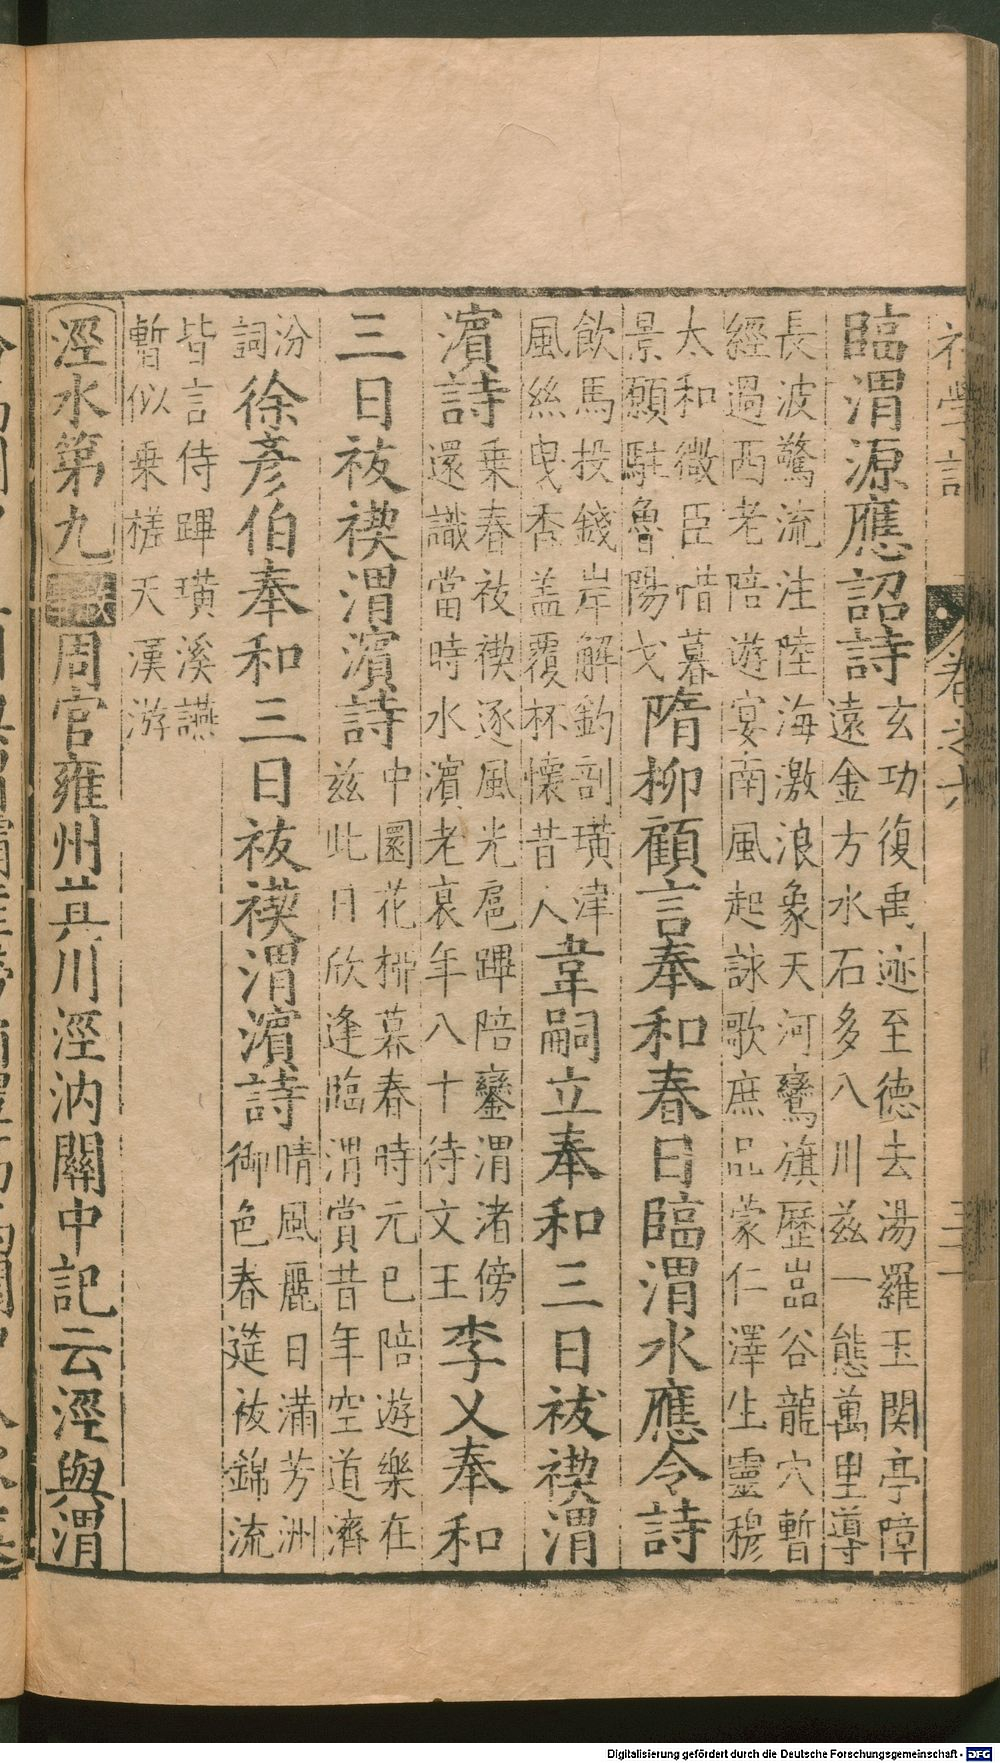 卷之六
臨渭源應詔詩
玄功復禹迹至德去湯羅玉関亭障
遠金方水石多八川兹一態萬里導
長波驚流注陸海激浪象天河鸞旗歷嵓谷龍穴暫
經過西老陪遊宴南風起詠歌庶品蒙仁澤生靈穆
太和微臣惜暮
景願駐魯陽戈
隋柳顧言奉和春日臨渭水應令詩
飲馬投錢岸解釣剖璜津
風絲曳香盖覆杯懷昔人
韋嗣立奉和三日袚禊渭
濱詩
乗春袚禊逐風光扈蹕陪鑾渭渚傍
還識當時水濱老裏年八十待文王
李乂奉和
三日袚禊渭濱詩
中園花栁暮春時元巳陪遊樂在
兹此日欣逢臨渭賞昔年空道濟
汾
詞
徐彥伯奉和三日袚禊渭濱詩
晴風麗日滿芳洲
御色春筵袚錦流
皆言侍蹕璜溪讌
暫似乗槎天漢游
涇水第九
周官雍州其川涇汭關中記云涇與渭
Digitalisierung gefördert durch die Deutsche Forschungsgemeinschaft - DFG